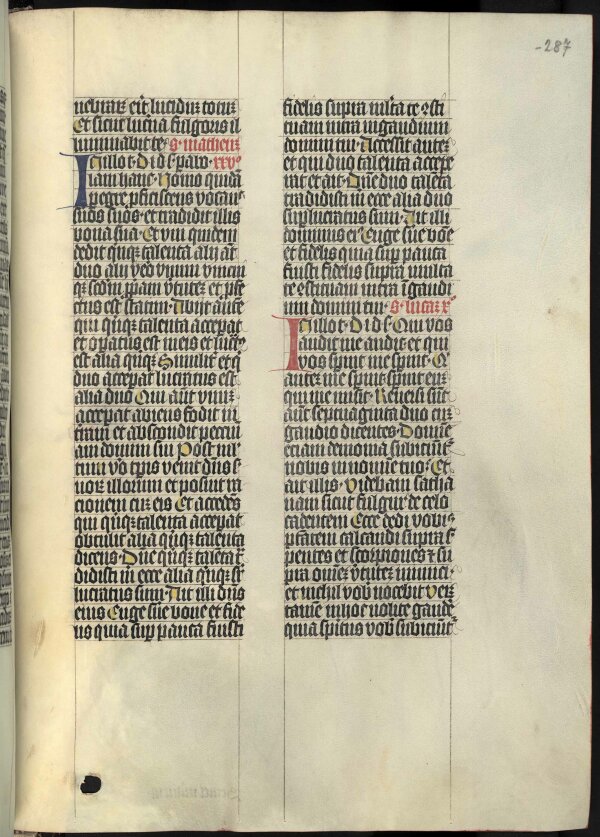 -287
nebraꝝ erit lucidum totum
Et sicut lucerna fulgoris il
luminabit te· s· matheum
In illo t· D ih s· parabo· xxvͦ
lam hanc· Homo quidā
pegre pficiscens vocauit
suos suos· et tradidit illis
bona sua· Et vni quidem
dedit quinqꝫ talenta alij aūt
duo alij vero vnum vnicui
qꝫ scdm ppriam virtutem et pfe
ctus est statim· Abijt autē
qui quinqꝫ talenta accepat
et opatus est in eis et lucratꝰ
est alia quinqꝫ Similiter et qͥ
duo accepat lucratus est
alia duo Qui aūt vnum
accepat abiens fodit in
terram et abscondit pecuni
am domini sui Post mul
tum vero tpis venit dn̄s s
uorum illorum et posuit ra
cionem cum eis Et accedens
qui quinqꝫ talenta accepat
obtulit alia quinqꝫ talenta
dicens· Dn̄e quinqꝫ talenta t
didisti m ecce alia quinqꝫ sr
lucratus sum· Ait illi dn̄s
eius Euge sue bone et fide
lis quia super pauca fuisti
fidelis supra multa te ꝯsti
tuam intra in gaudium
domini tui· Accessit autem
et qui duo talenta accepe
rat et ait· Dn̄e duo talēta
tradidisti m ecce alia duo
suplucratus sum· Ait illi
dominus eiꝰ Euge sue bōe
et fidelis quia super pauca
fuisti fidelis supra multa
te ꝯstituam intra ī gaudi
um domini tui· s· lucam xͦ
In illo t· D ih s· Qui vos
audit me audit et qui
vos spnit me spnit· Qͥ
autem me spnit spnit eum
qui me misit· Reuersi sūt
aūt septuaginta duo cum
gaudio dicentes· Domine
eciam demonia subiciunt
nobis in nomine tuo· Et
ait illis· Videbam satha
nam sicut fulgur de celo
cadentem Ecce dedi vobis
ptatem calcandi supra s
pentes et scorpiones ⁊ su
pra omnem virtutem inimici·
et nichil vob nocebit Verꝫ
tamē in hoc nolite gaudē
quia spiritus vob subiciunt